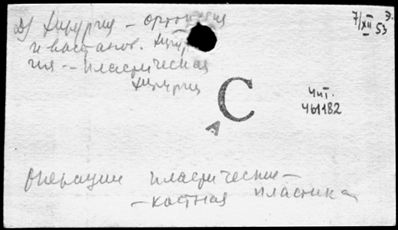 Д) Хирургия - ортопедия
и востанов. хирур
гия -- пластическая
хирургия
7/XII 53 г.
С
А
Чит.
461182
Операции пластические -
- костная пластика